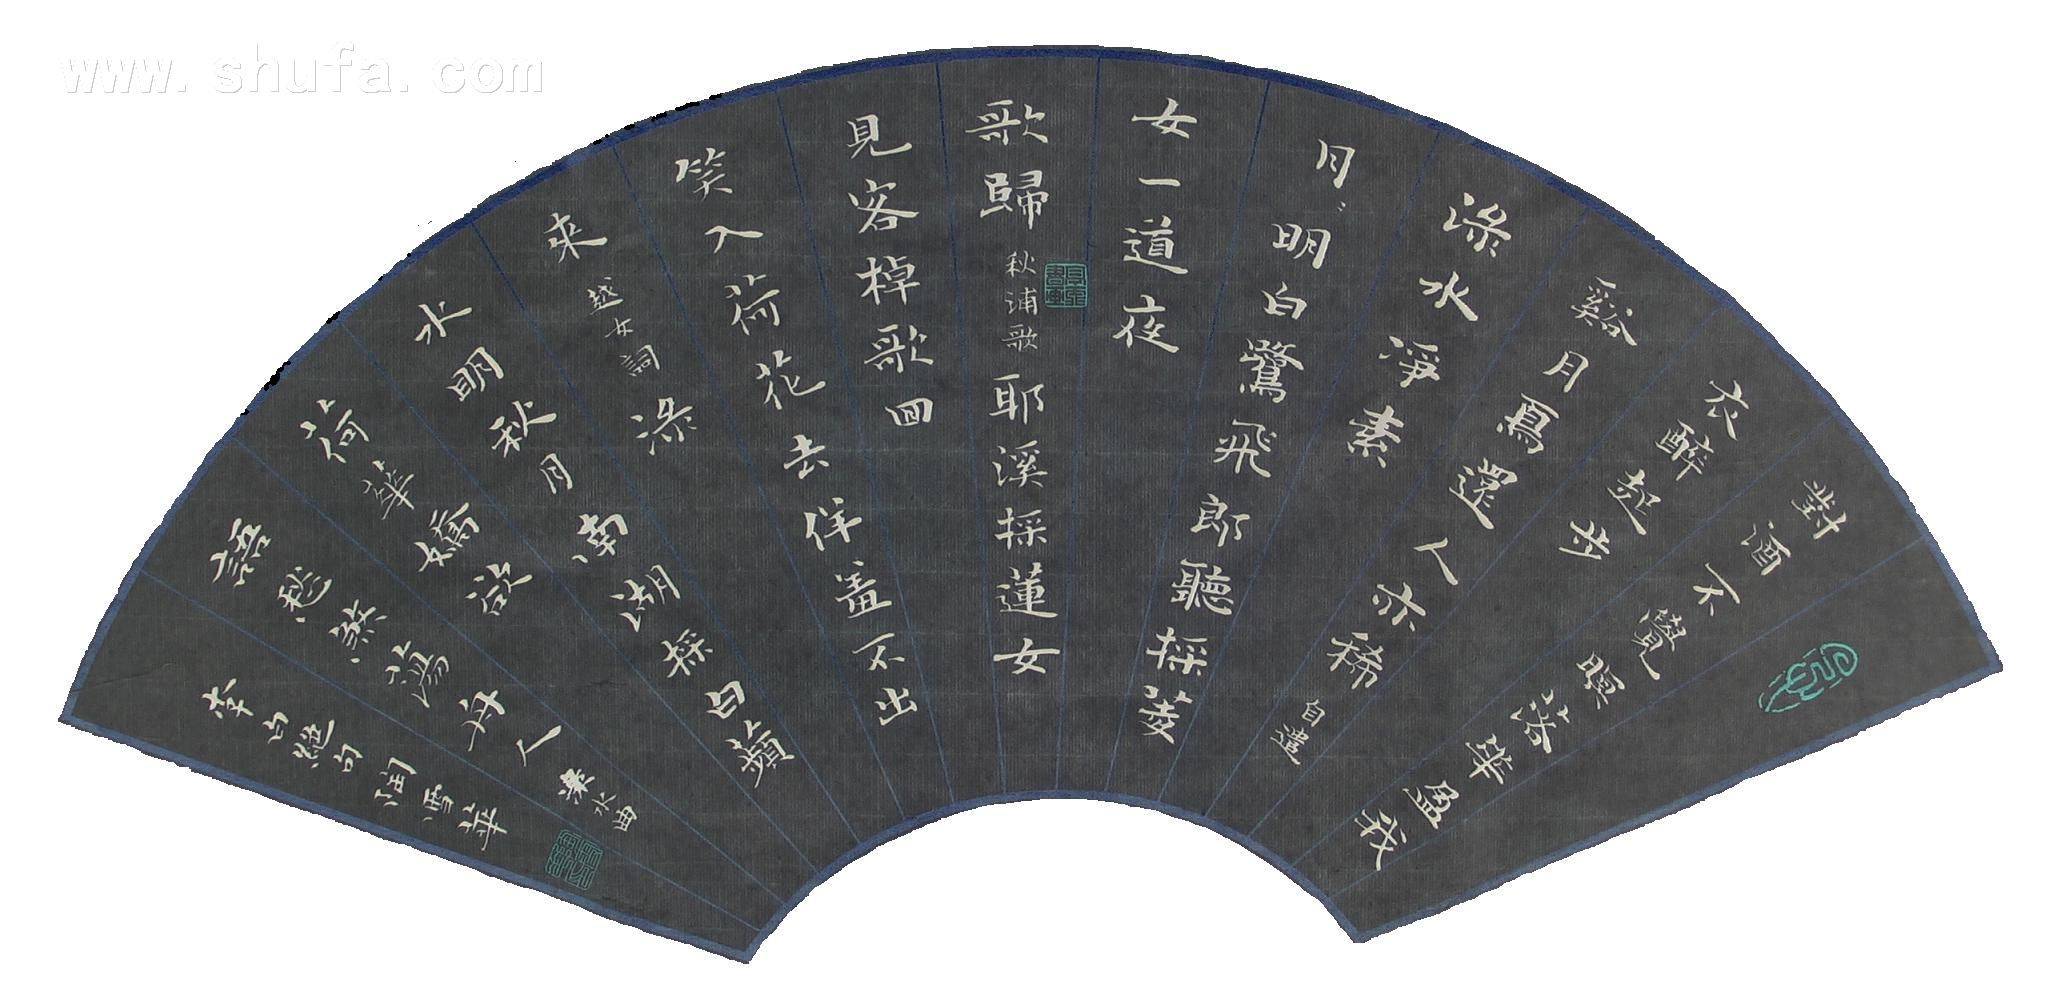 www.shufa.com
對酒不覺暝落華盈我
衣醉起步
谿月鳥還人亦稀 自遣
淥水淨素
月〻明白鷺飛郎聽採菱
女一道夜
歌歸 秋浦歌 耶溪採蓮女
見客棹歌囬
笑入荷花去佯羞不出
來 越女詞 淥
水明秋月南湖採白蘋
荷華嬌欲
語愁煞蕩舟人 淥水曲
李白絕句 雪華